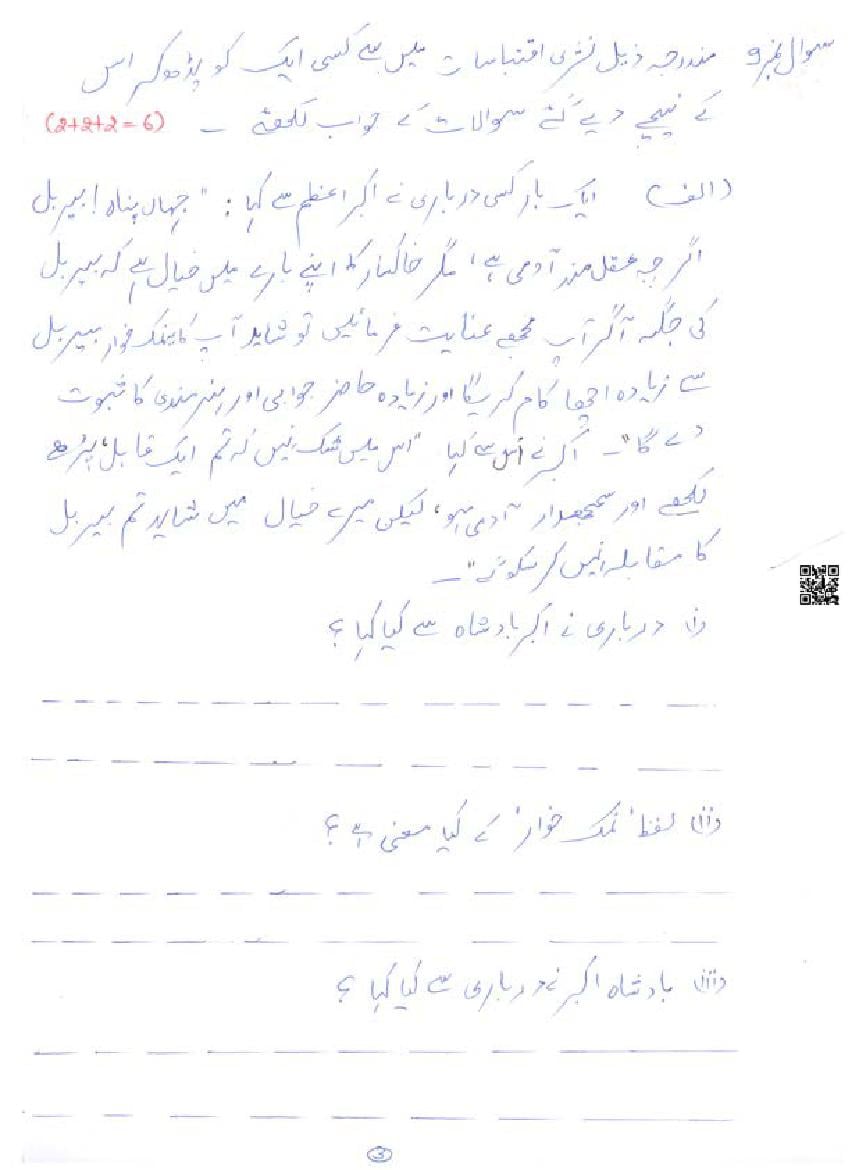 سوال نمبر 9 مندرجہ ذیل نثری اقتباسات میں سے کسی ایک کو پڑھ کر اس
کے نیچے دیے گئے سوالات کے جواب لکھئے ۔ (2+2+2=6)
(الف) ایک بار کسی درباری نے اکبر اعظم سے کہا: "جہاں پناہ! بیربل
اگرچہ عقل مند آدمی ہے، مگر خاکسار کا اپنے بارے میں خیال ہے کہ بیربل
کی جگہ اگر آپ مجھے عنایت فرمائیں تو شاید آپ کا نمک خوار بیربل
سے زیادہ اچھا کام کریگا اور زیادہ حاضر جوابی اور ہنر مندی کا ثبوت
دے گا"۔ اکبر نے اس سے کہا "اس میں شک نہیں کہ تم ایک قابل، پڑھے
لکھے اور سمجھدار آدمی ہو، لیکن میرے خیال میں شاید تم بیربل
کا مقابلہ نہیں کر سکو گے"۔
(i) درباری نے اکبر بادشاہ سے کیا کہا؟
(ii) لفظ 'نمک خوار' کے کیا معنی ہے؟
(iii) بادشاہ اکبر نے درباری سے کیا کہا؟
3